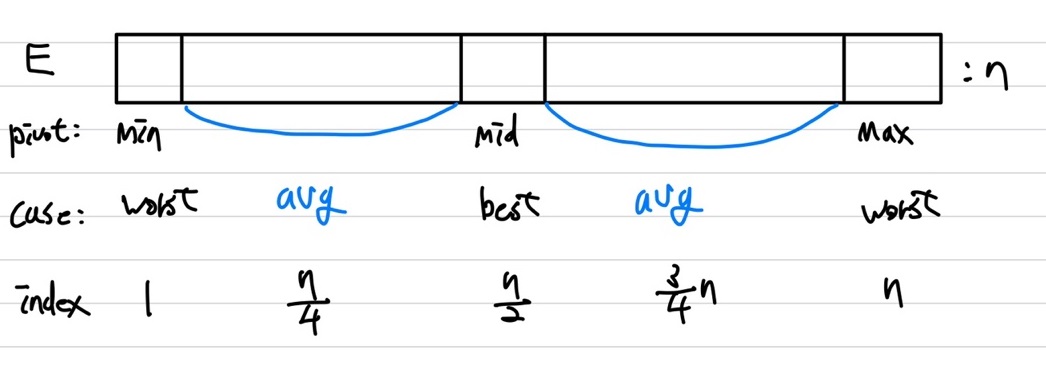 E : n
pivot: min mid max
case: worst avg best avg worst
index 1 n/4 n/2 3/4 n n